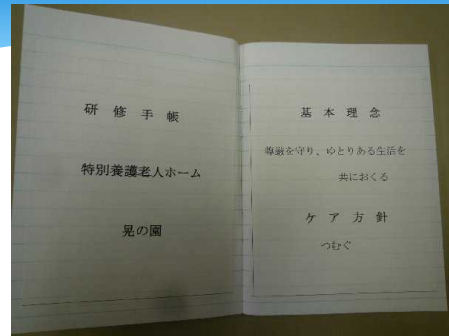 研修手帳
特別養護老人ホーム
晃の園
基本理念
尊厳を守り、ゆとりある生活を
共におくる
ケア方針
つむぐ